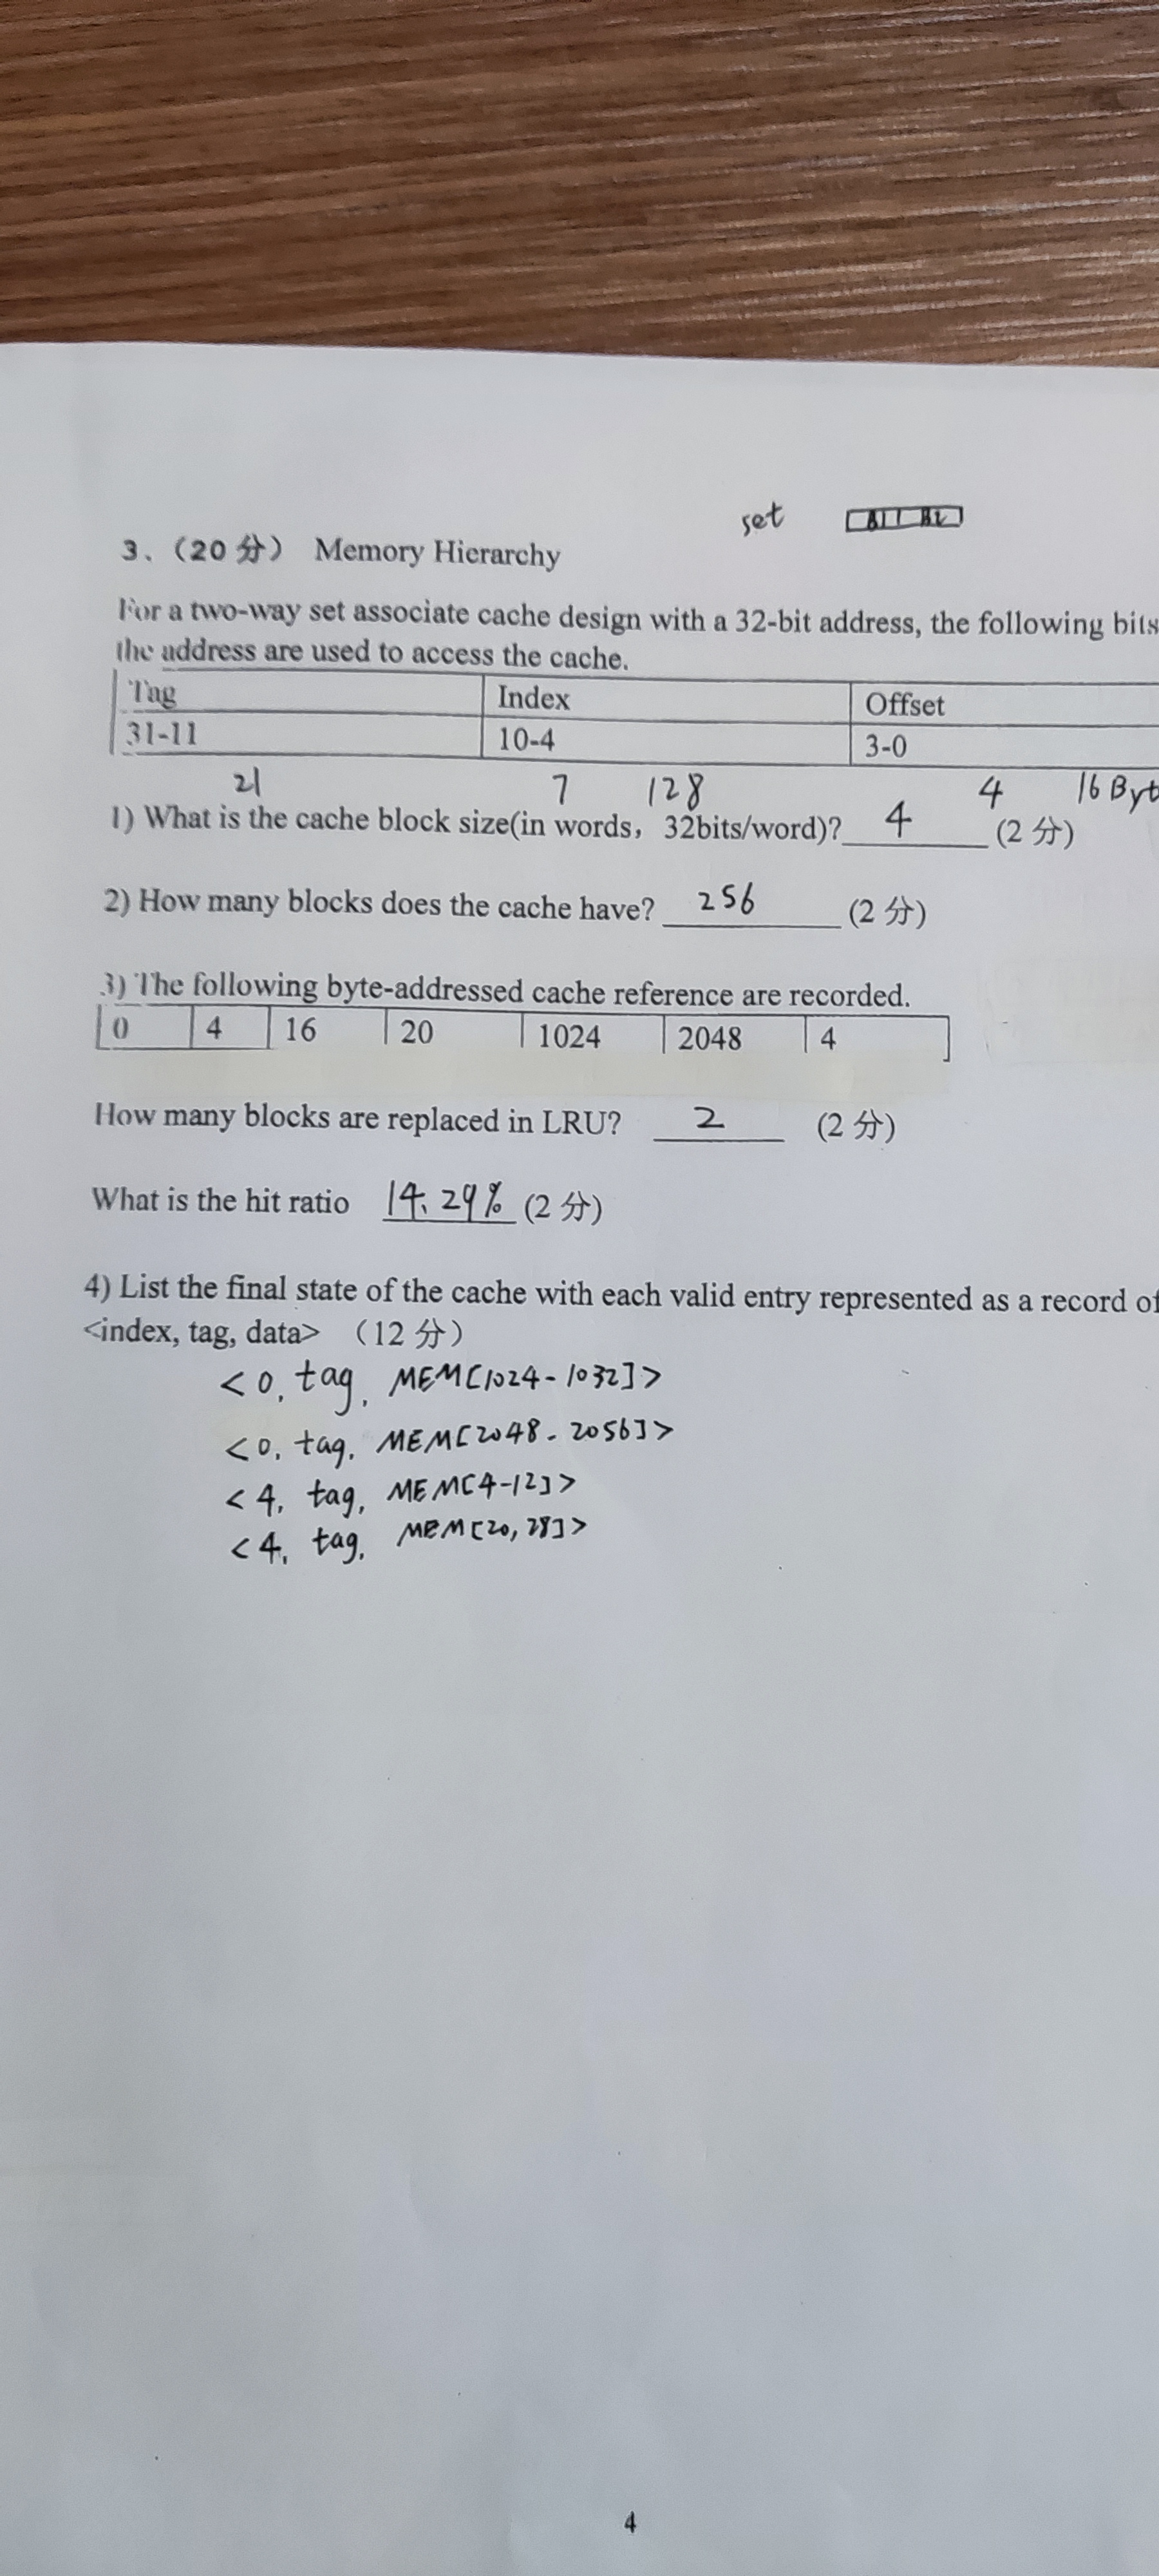 set
3、（20 分） Memory Hierarchy
For a two-way set associate cache design with a 32-bit address, the following bits
the address are used to access the cache.
Tag Index Offset
31-11 10-4 3-0
21 7 128 4 16 Byt
1) What is the cache block size(in words，32bits/word)? 4 (2 分)
2) How many blocks does the cache have? 256 (2 分)
3) The following byte-addressed cache reference are recorded.
0 4 16 20 1024 2048 4
How many blocks are replaced in LRU? 2 (2 分)
What is the hit ratio 14.29% (2 分)
4) List the final state of the cache with each valid entry represented as a record of
<index, tag, data> （12 分）
<0, tag, MEM[1024-1032]>
<0, tag, MEM[2048-2056]>
<4, tag, MEM[4-12]>
<4, tag, MEM[20,28]>
4